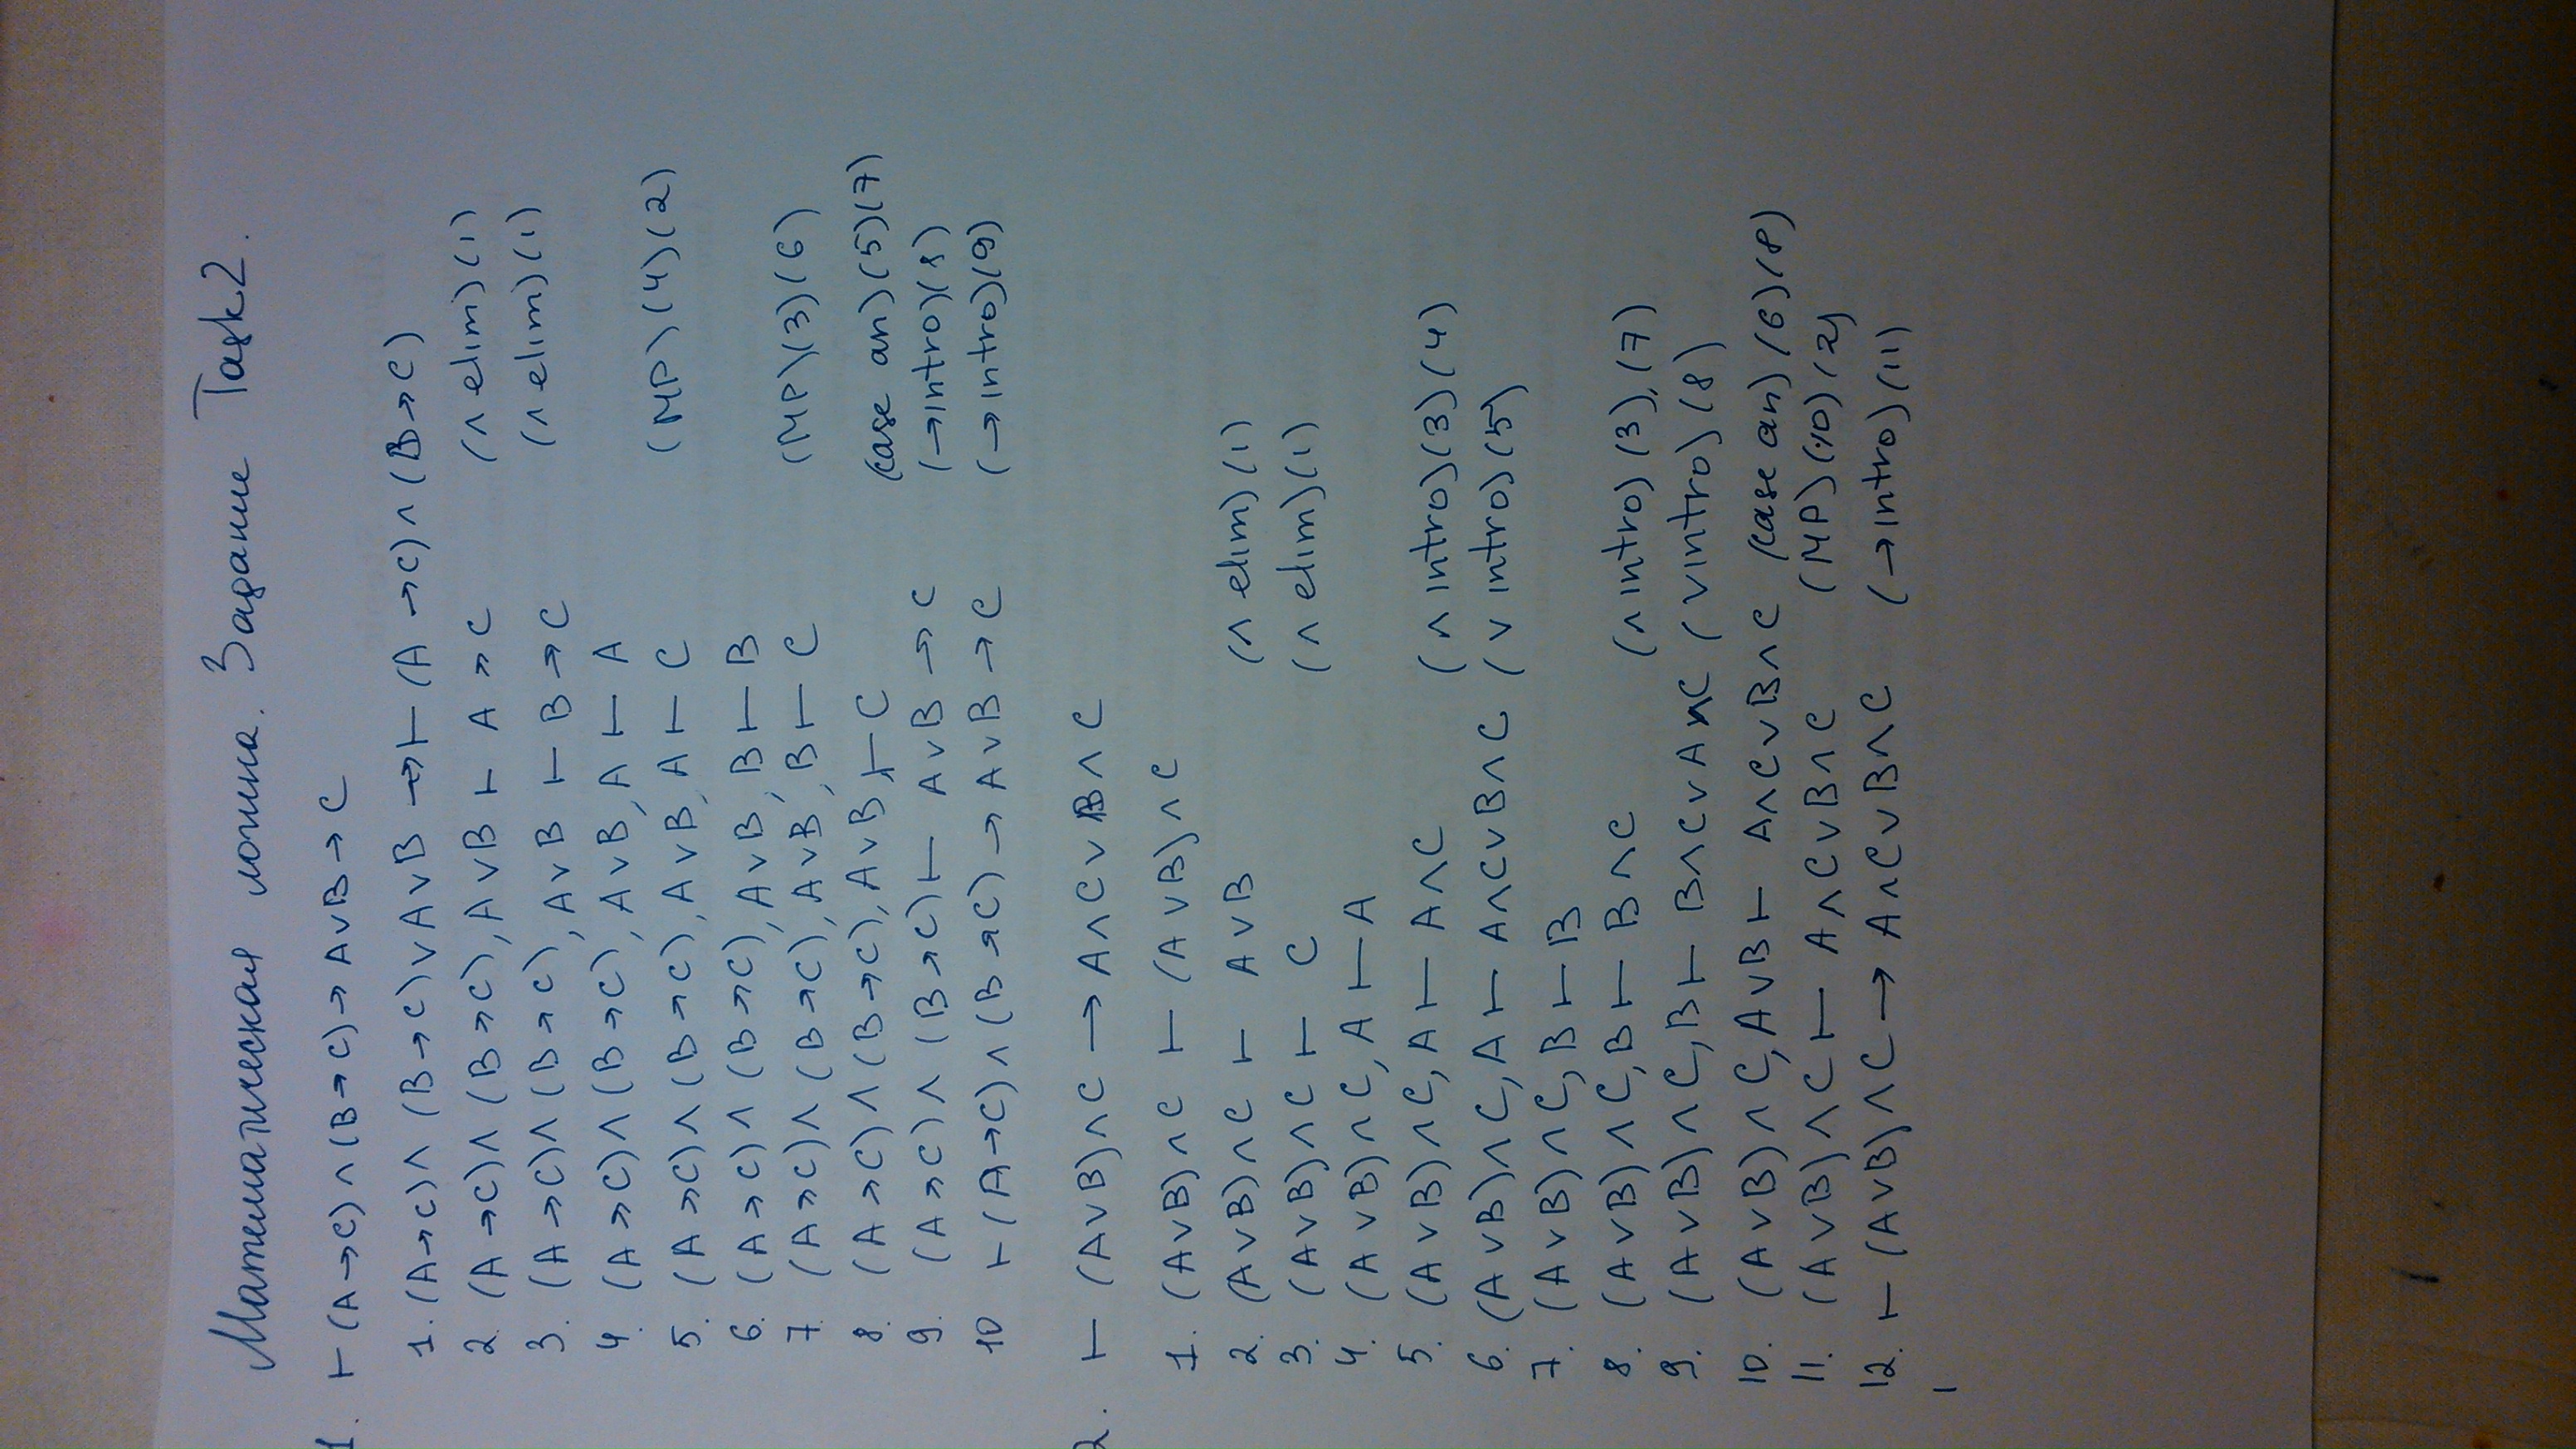 Математическая логика. Задание Task 2.
1. ⊢ (A→C) ∧ (B→C) → A∨B → C
1. (A→C) ∧ (B→C) ∨ A∨B → ⊢ (A→C) ∧ (B→C)
2. (A→C) ∧ (B→C), A∨B ⊢ A→C (∧ elim) (1)
3. (A→C) ∧ (B→C), A∨B ⊢ B→C (∧ elim) (1)
4. (A→C) ∧ (B→C), A∨B, A ⊢ A
5. (A→C) ∧ (B→C), A∨B, A ⊢ C (MP) (4) (2)
6. (A→C) ∧ (B→C), A∨B, B ⊢ B
7. (A→C) ∧ (B→C), A∨B, B ⊢ C (MP) (3) (6)
8. (A→C) ∧ (B→C), A∨B, ⊢ C (case an) (5) (7)
9. (A→C) ∧ (B→C) ⊢ A∨B → C (→intro) (8)
10 ⊢ (A→C) ∧ (B→C) → A∨B → C (→intro) (9)
2. ⊢ (A∨B) ∧ C → A∧C ∨ B∧C
1. (A∨B) ∧ C ⊢ (A∨B) ∧ C
2. (A∨B) ∧ C ⊢ A∨B (∧ elim) (1)
3. (A∨B) ∧ C ⊢ C (∧ elim) (1)
4. (A∨B) ∧ C, A ⊢ A
5. (A∨B) ∧ C, A ⊢ A∧C (∧ intro) (3) (4)
6. (A∨B) ∧ C, A ⊢ A∧C∨B∧C (∨ intro) (5)
7. (A∨B) ∧ C, B ⊢ B
8. (A∨B) ∧ C, B ⊢ B∧C (∧ intro) (3), (7)
9. (A∨B) ∧ C, B ⊢ B∧C∨A∧C (∨intro) (8)
10. (A∨B) ∧ C, A∨B ⊢ A∧C∨B∧C (case an) (6) (8)
11. (A∨B) ∧ C ⊢ A∧C∨B∧C (MP) (10) (2)
12. ⊢ (A∨B) ∧ C → A∧C∨B∧C (→intro) (11)